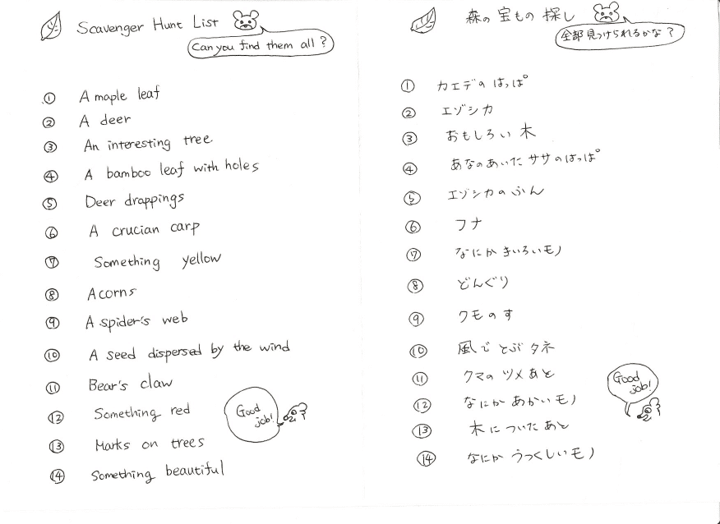 Scavenger Hunt List
Can you find them all?
① A maple leaf
② A deer
③ An interesting tree
④ A bamboo leaf with holes
⑤ Deer drappings
⑥ A crucian carp
⑦ Something yellow
⑧ Acorns
⑨ A spider's web
⑩ A seed dispersed by the wind
⑪ Bear's claw
⑫ Something red
⑬ Marks on trees
⑭ Something beautiful
Good
job!
森の宝もの探し
全部見つけられるかな?
① カエデのはっぱ
② エゾシカ
③ おもしろい木
④ あなのあいたササのはっぱ
⑤ エゾシカのふん
⑥ フナ
⑦ なにかきいろいモノ
⑧ どんぐり
⑨ クモのす
⑩ 風でとぶタネ
⑪ クマのツメあと
⑫ なにかあかいモノ
⑬ 木についたあと
⑭ なにかうつくしいモノ
Good
job!